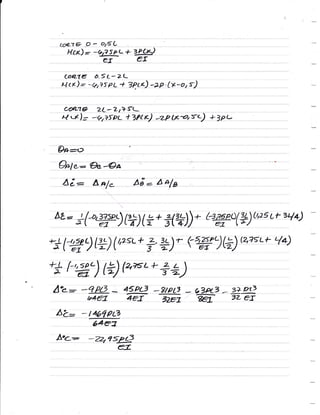 CORTE 0 - 0,5L
M(x) = -6,75PL + 3P(x)
EI EI
CORTE 0.5L-2L
M(x) = -6,75PL + 3P(x) -2P(x-0,5)
CORTE 2L-2,75L
M(x) = -6,75PL + 3P(x) -2P(x-0,5L) + 3PL
θA=0
θB/C = θB - θA
ΔC = Δ A/C ΔB = Δ A/B
ΔC = 1/2 (-0,375PL/EI)(3L/4)(L/2 + 2/3(3L/4)) + (-3,75PL/EI)(3L/2)(1,25L + 3L/4)
+1/2 (-1,5PL/EI)(3L/2)(1,25L + 2/3 · 3L/2) + (-5,25PL/EI)(L/2)(2,75L + L/4)
+1/2 (-1,5PL/EI)(L/2)(2,75L + 2/3 L/2)
Δ°C = -9PL3/64EI - 45PL3/4EI - 81PL3/32EI - 63PL3/8EI - 37PL3/32EI
ΔC = -1469PL3/64EI
Δ°C = -22,95PL3/EI